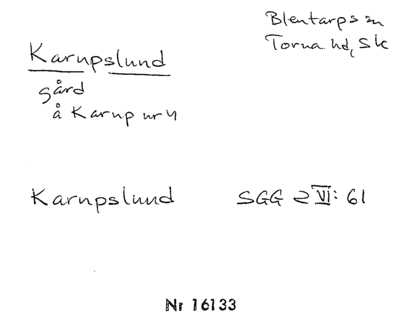 Karupslund
Blentarps sn
Torna hd, Sk
gård
å Karup nr 4
Karupslund SGG 2 VI: 61
Nr 16133